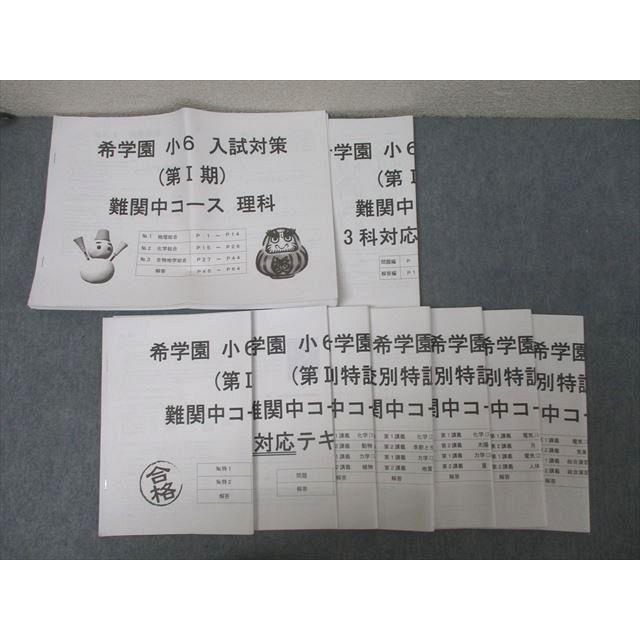 希学園 小6 入試対策
(第Ⅰ期)
難関中コース 理科
№.1 物理総合 P 1 ~ P14
№.2 化学総合 P15 ~ P26
№.3 生物地学総合 P27 ~ P44
解答 P45 ~ P64
学園 小6
(第Ⅰ
難関中
3科対応
問題編 P
解答編 P1
希学園 小6
(第Ⅰ
難関中コー
合格
№特1
№特2
解答
希学園 小6
(第Ⅰ
難関中コー
対応テキ
問題
解答
希学園
別特訓
関中コー
1講義 化学
2講義 動物
1講義 力学
2講義 植物
解答
希学園
別特訓
関中コー
第1講義 化学
第2講義 季節と
第1講義 力学
第2講義 地質
解答
希学園
別特訓
関中コー
第1講義 化学
第2講義 太陽
第1講義 力学
第2講義 星
解答
希学園
別特訓
関中コー
第1講義 電気
第2講義 月
第1講義 電気
第2講義 人体
解答
希学園
別特訓
関中コー
第1講義 電気
第2講義 気象
第1講義 総合演
第2講義 総合演
解答